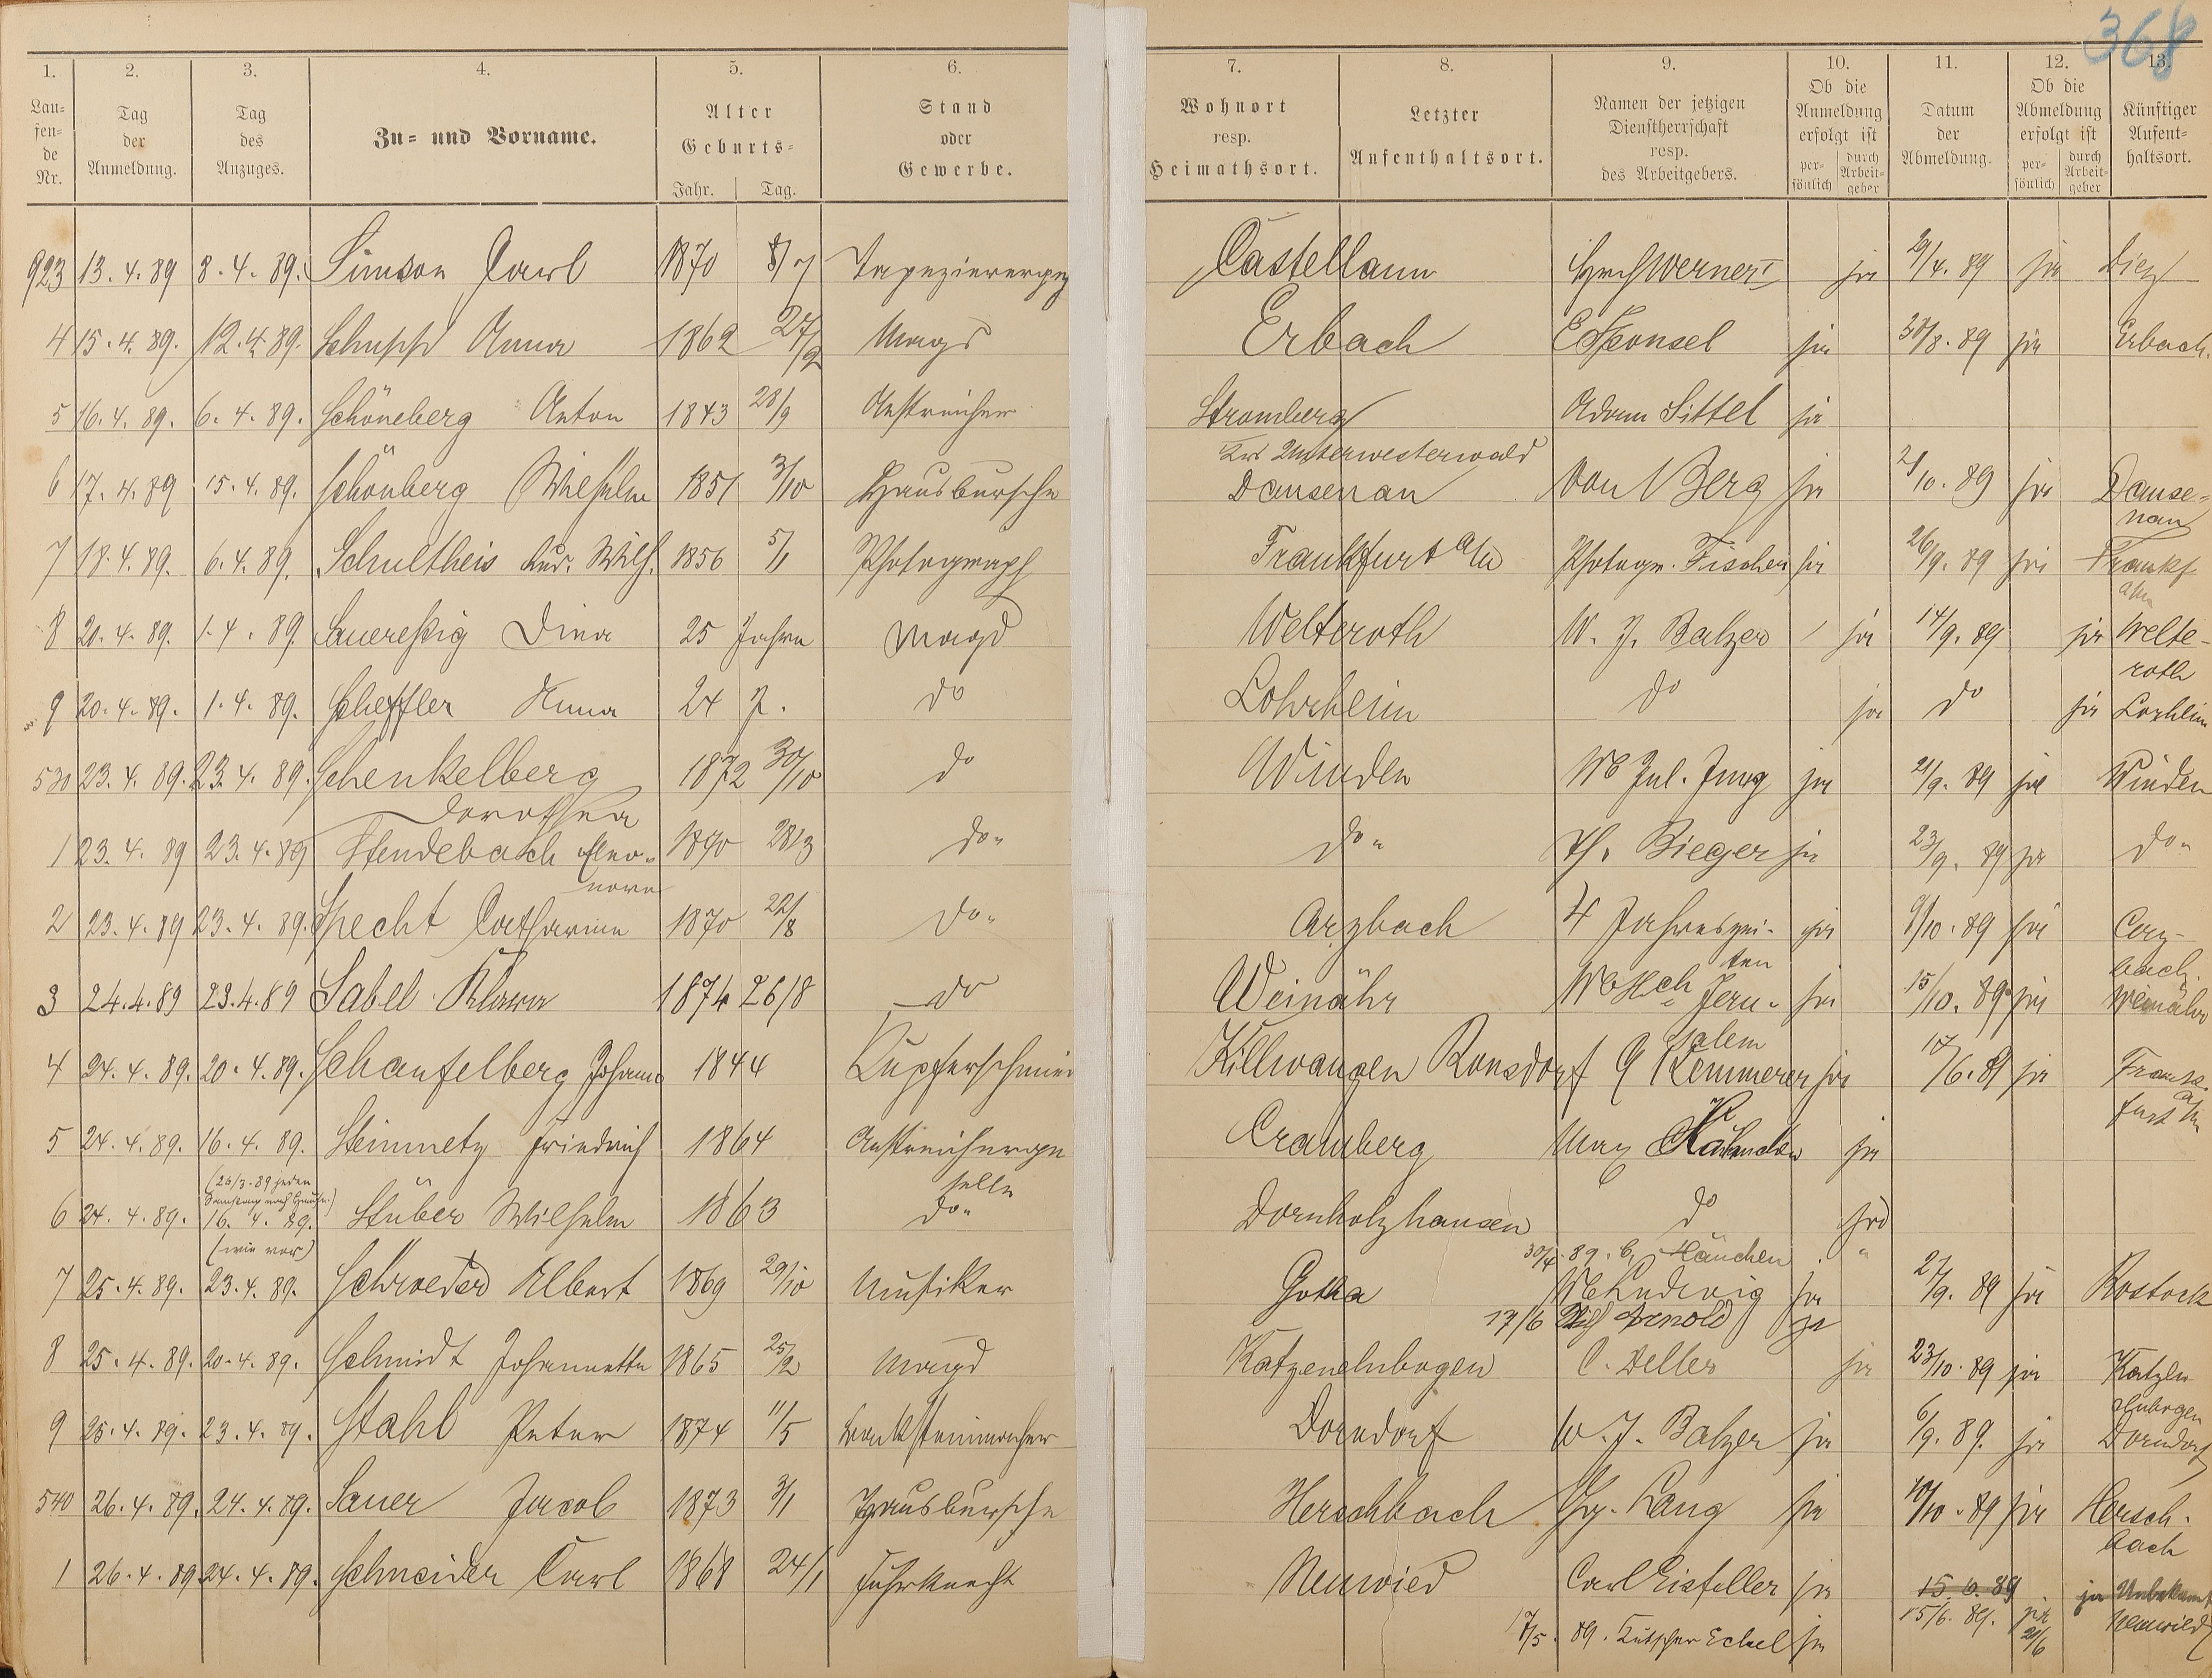 368
1. 2. 3. 4. 5. 6. 7. 8. 9. 10. 11. 12. 13.
Laufende Nr. | Tag der Anmeldung. | Tag des Anzuges. | Zu= und Vorname. | Alter Geburts= Jahr. Tag. | Stand oder Gewerbe. | Wohnort resp. Heimathsort. | Letzter Aufenthaltsort. | Namen der jetzigen Dienstherrschaft resp. des Arbeitgebers. | Ob die Anmeldung erfolgt ist persönlich durch Arbeitgeber | Datum der Abmeldung. | Ob die Abmeldung erfolgt ist persönlich durch Arbeitgeber | Künftiger Aufenthaltsort.
923 13. 4. 89 8. 4. 89. Simson Carl 1870 8/7 Castellaun Werner I ja 29/4. 89 ja Diez
4 15. 4. 89. 12. 4. 89. Schupp Anna 1862 27/2 Magd Erbach E Sponsel ja 30/8. 89 ja Erbach.
5 16. 4. 89. 6. 4. 89. Schöneberg Anton 1843 28/9 Anstreicher Stromberg Adam Sittel ja
Krs Unterwesterwald
6 17. 4. 89 15. 4. 89. Schönberg Wilhelm 1851 3/10 Hausbursche Dausenau von Berg ja 2/10. 89 ja Dause=
nau
7 18. 4. 89. 6. 4. 89. Schultheis Lud. Wilh. 1856 5/1 Photograph Frankfurt a/M Photogr. Fischer ja 26/9. 89 ja Frankf
a/M
8 20. 4. 89. 1. 4. 89. Saueressig Dina 25 Jahre Magd Welteroth W. J. Balzer ja 14/9. 89 ja Welte-
roth
9 20. 4. 89. 1. 4. 89. Scheffler Anna 24 J. do Lohrheim do ja do ja Lorheim
530 23. 4. 89. 23. 4. 89. Schenkelberg 1872 30/10 do Winden Wb Jul. Jung ja 21/9. 89 ja Winden
Dorothea
1 23. 4. 89 23. 4. 89 Stendebach Eleo- 1870 28/3 do do Th. Bieger ja 23/9. 89 ja do
nora
2 23. 4. 89 23. 4. 89. Specht Catharina 1870 22/8 do Arzbach 4 Jahreszei- ja 9/10. 89 ja Arz-
ten bach.
3 24. 4. 89 23. 4. 89 Sabel Klara 1874 26/8 do Weinähr Jeru- ja 15/10. 89 ja Weinähr
salem
4 24. 4. 89. 20. 4. 89. Schaufelberg Johann 1844 Kupferschmied Killwangen Ronsdorf G Kemmerer ja 17/6. 89 ja Frank-
furt a/M
5 24. 4. 89. 16. 4. 89. Steinmetz Friedrich 1864 Anstreicherge Cramberg Max ja
(26/3. 89 jeden Samstag nach Hause) selle
6 24. 4. 89. 16. 4. 89. Stüber Wilhelm 1863 do Dornholzhausen do ja
(wie vor) 30/4. 89. Häuchen "
7 25. 4. 89. 23. 4. 89. Schroeder Albert 1869 29/10 Musiker Gotha Wb Ludwig ja 27/9. 89 ja Rostock
17/6 Arnold ja
8 25. 4. 89. 20. 4. 89. Schmidt Johannetta 1865 25/2 Magd Katzenelnbogen C. Deller ja 23/10. 89 ja Katzen
elnbogen
9 25. 4. 89. 23. 4. 89. Stahl Peter 1874 11/5 Dorndorf W. J. Balzer ja 6/9. 89. ja Dorndorf
540 26. 4. 89. 24. 4. 89. Sauer Jacob 1873 3/1 Hausbursche Herschbach Lang ja 10/10. 89 ja Hersch-
bach
1 26. 4. 89 24. 4. 89. Schneider Carl 1868 24/1 Fuhrknecht Neuwied Carl Eisfeller ja 15. 6. 89 ja Unbekannt
17/5. 89. Kutscher Eckel ja 15/6. 89. ja 21/6 Neuwied